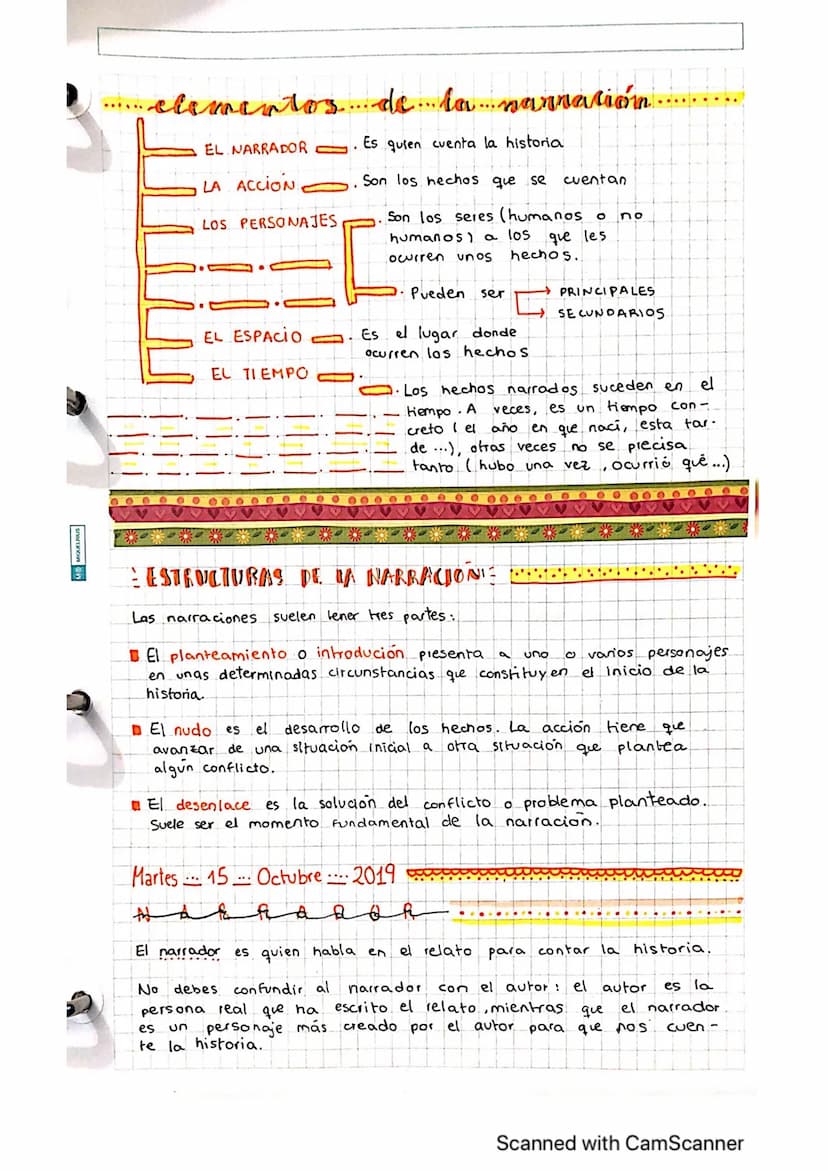 elementos de la narración
EL NARRADOR . Es quien cuenta la historia
LA ACCIÓN . Son los hechos que se cuentan
LOS PERSONAJES . Son los seres (humanos o no
humanos) a los que les
ocurren unos hechos.
. Pueden ser → PRINCIPALES
→ SECUNDARIOS
EL ESPACIO . Es el lugar donde
ocurren los hechos
EL TIEMPO .
. Los hechos narrados suceden en el
tiempo. A veces, es un tiempo con-
creto (el año en que nací, esta tar-
de ...), otras veces no se precisa
tanto (hubo una vez, ocurrió qué...)
MIQUELRIUS
ESTRUCTURAS DE LA NARRACIÓN:
Las narraciones suelen tener tres partes:
El planteamiento o introdución presenta a uno o varios personajes
en unas determinadas circunstancias que constituyen el inicio de la
historia.
El nudo es el desarrollo de los hechos. La acción tiene que
avanzar de una situación inicial a otra situación que plantea
algún conflicto.
El desenlace es la solución del conflicto o problema planteado.
Suele ser el momento fundamental de la narración.
Martes ... 15 ... Octubre ... 2019
NARRADOR
El narrador es quien habla en el relato para contar la historia.
No debes confundir al narrador con el autor: el autor es la
persona real que ha escrito el relato, mientras que el narrador
es un personaje más creado por el autor para que nos cuen-
te la historia.
Scanned with CamScanner